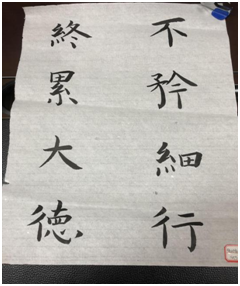 不矜細行
終累大德